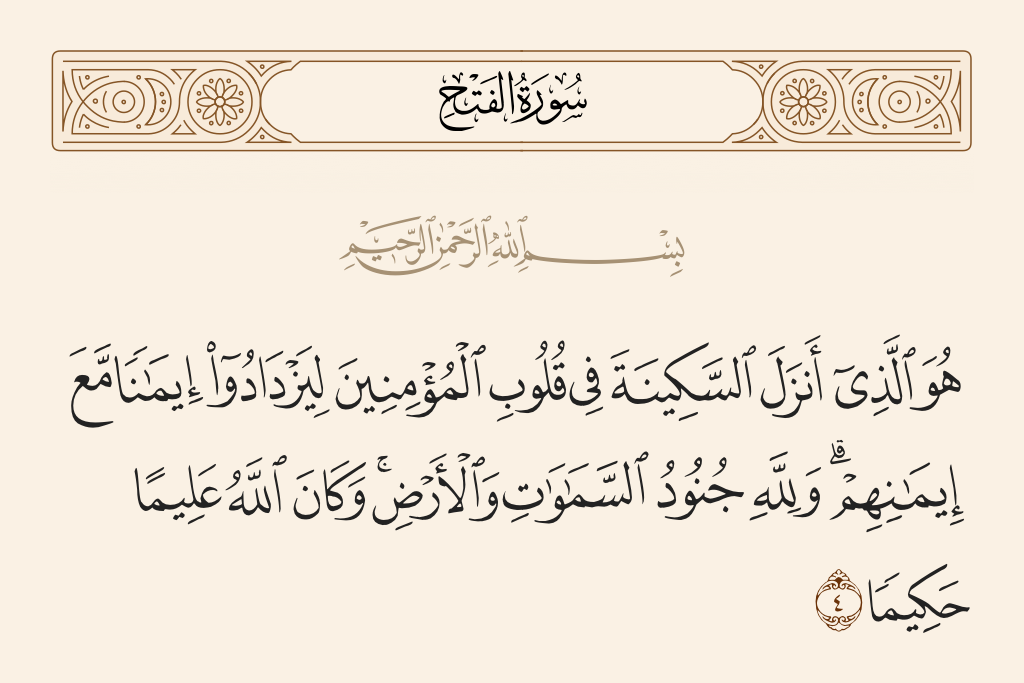 سُورَةُ الفَتْحِ
بِسْمِ ٱللَّهِ ٱلرَّحْمَٰنِ ٱلرَّحِيمِ
هُوَ ٱلَّذِىٓ أَنزَلَ ٱلسَّكِينَةَ فِى قُلُوبِ ٱلْمُؤْمِنِينَ لِيَزْدَادُوٓا۟ إِيمَـٰنًا مَّعَ
إِيمَـٰنِهِمْ ۗ وَلِلَّهِ جُنُودُ ٱلسَّمَـٰوَٰتِ وَٱلْأَرْضِ ۚ وَكَانَ ٱللَّهُ عَلِيمًا
حَكِيمًا ٤